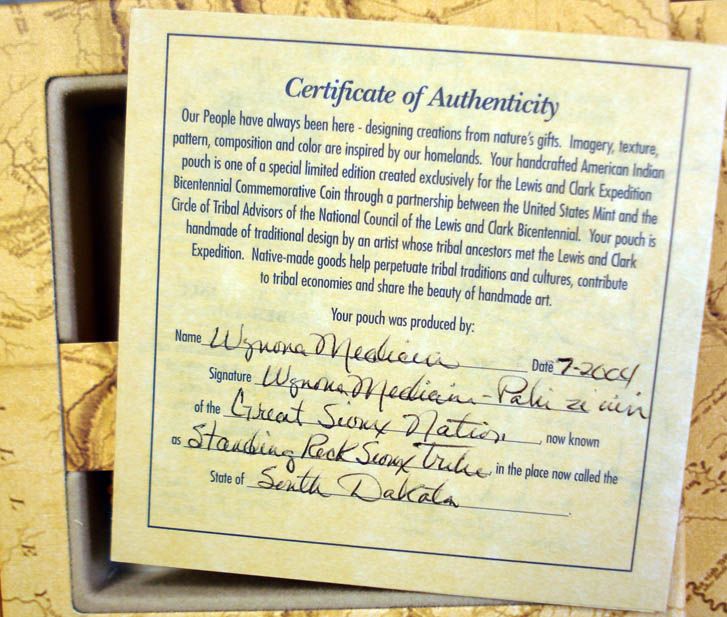 Certificate of Authenticity
Our People have always been here - designing creations from nature's gifts. Imagery, texture,
pattern, composition and color are inspired by our homelands. Your handcrafted American Indian
pouch is one of a special limited edition created exclusively for the Lewis and Clark Expedition
Bicentennial Commemorative Coin through a partnership between the United States Mint and the
Circle of Tribal Advisors of the National Council of the Lewis and Clark Bicentennial. Your pouch is
handmade of traditional design by an artist whose tribal ancestors met the Lewis and Clark
Expedition. Native-made goods help perpetuate tribal traditions and cultures, contribute
to tribal economies and share the beauty of handmade art.
Your pouch was produced by:
Name Wynona Medicine Date 7-2004
Signature Wynona Medicine - Pahi zi win
of the Great Sioux Nation, now known
as Standing Rock Sioux Tribe, in the place now called the
State of South Dakota.
L L E